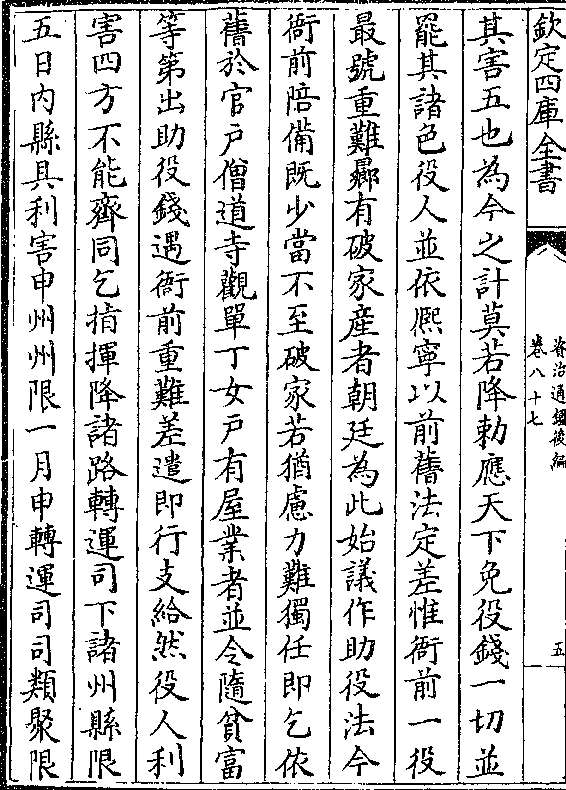 欽定四庫全書
資治通鑑後編
卷八十七
五
其害五也為今之計莫若降勅應天下免役錢一切並
罷其諸色役人並依熈寧以前舊法定差惟衙前一役
最號重難曏有破家產者朝廷為此始議作助役法今
衙前陪備既少當不至破家若猶慮力難獨任即乞依
舊於官戸僧道寺觀單丁女戸有屋業者並令隨貧富
等第出助役錢遇衙前重難差遣即行支給然役人利
害四方不能齊同乞指揮降諸路轉運司下諸州縣限
五日內縣具利害申州州限一月申轉運司司類聚限